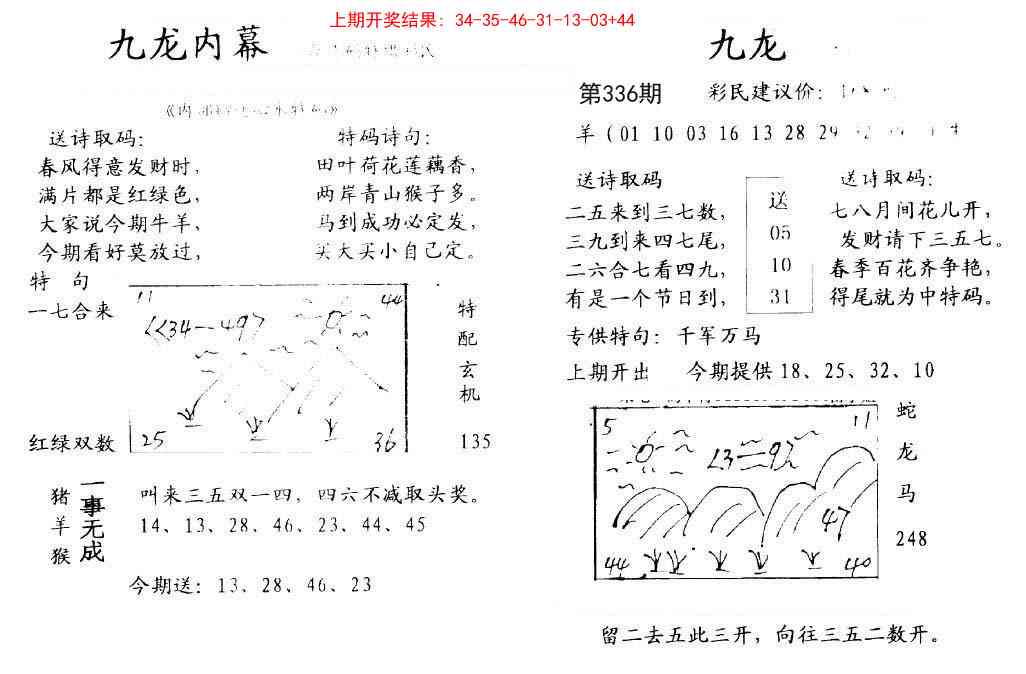 上期开奖结果：34-35-46-31-13-03+44
九龙内幕
送诗取码：
春风得意发财时，
满片都是红绿色，
大家说今期牛羊，
今期看好莫放过，
特码诗句：
田叶荷花莲藕香，
两岸青山猴子多。
马到成功必定发，
买大买小自己定。
特 句
一七合来
红绿双数
11
44
<<34—49>
25
36
特
配
玄
机
135
猪
羊
猴
一事无成
叫来三五双一四，四六不减取头奖。
14、13、28、46、23、44、45
今期送：13、28、46、23
九龙
第336期
彩民建议价：
羊（01 10 03 16 13 28 29
送诗取码
二五来到三七数，
三九到来四七尾，
二六合七看四九，
有是一个节日到，
送
05
10
31
送诗取码：
七八月间花儿开，
发财请下三五七。
春季百花齐争艳，
得尾就为中特码。
专供特句：千军万马
上期开出 今期提供18、25、32、10
5
11
47
44
40
蛇
龙
马
248
留二去五此三开，向往三五二数开。